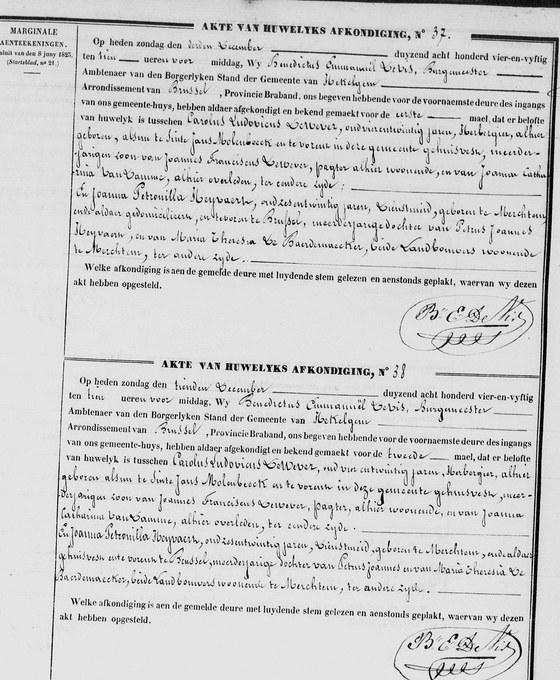 MARGINALE
AENTEEKENINGEN.
sluit van den 8 juny 1823.
(Staetsblad, nº 21.)
AKTE VAN HUWELYKS AFKONDIGING, Nº 37.
Op heden zondag den derden December duyzend acht honderd vier-en-vyftig
ten tien ueren voor middag, Wy Benedictus Emmanuël De Vis, Burgmeester
Ambtenaer van den Borgerlyken Stand der Gemeente van Hekelgem
Arrondissement van Brussel, Provincie Braband, ons begeven hebbende voor de voornaemste deure des ingangs
van ons gemeente-huys, hebben aldaer afgekondigd en bekend gemaekt voor de eerste mael, dat er belofte
van huwelyk is tusschen Carolus Ludovicus De Wever, oud vierentwintig jaren, Herbergier, alhier
geboren, alsnu te Sinte Jans Molenbeeck en te vorens in deze gemeente gehuisvest, meerder-
jarigen zoon van Joannes Franciscus De Wever, pagter alhier woonende, en van Joanna Catha-
rina Van Damme, alhier overleden, ter eendere zyde;
En Joanna Petronilla Heyvaert, oud zesentwintig jaren, Dienstmeid, geboren te Merchtem
ende aldaer gedomicilieerd, en te vorens te Brussel, meerderjarige dochter van Petrus Joannes
Heyvaert, en van Maria Theresia De Baerdemaecker, beide Landbouwers woonende
te Merchtem, ter andere zyde.
Welke afkondiging is aen de gemelde deure met luydende stem gelezen en aenstonds geplakt, waervan wy dezen
akt hebben opgesteld.
B. E. De Vis
AKTE VAN HUWELYKS AFKONDIGING, Nº 38
Op heden zondag den tienden December duyzend acht honderd vier-en-vyftig
ten tien ueren voor middag, Wy Benedictus Emmanuël De Vis, Burgmeester
Ambtenaer van den Borgerlyken Stand der Gemeente van Hekelgem
Arrondissement van Brussel, Provincie Braband, ons begeven hebbende voor de voornaemste deure des ingangs
van ons gemeente-huys, hebben aldaer afgekondigd en bekend gemaekt voor de tweede mael, dat er belofte
van huwelyk is tusschen Carolus Ludovicus De Wever, oud vier entwintig jaren, Herbergier, alhier
geboren alsnu te Sinte Jans Molenbeeck en te vorens in deze gemeente gehuisvest, meer-
derjarigen zoon van Joannes Franciscus De Wever, pagter, alhier woonende, en van Joanna
Catharina Van Damme, alhier overleden, ter eendere zyde.
En Joanna Petronilla Heyvaert, oud zesentwintig jaren, Dienstmeid, geboren te Merchtem, ende aldaer
gehuisvest en te vorens te Brussel, meerderjarige dochter van Petrus Joannes en van Maria Theresia De
Baerdemaecker, beide Landbouwers woonende te Merchtem, ter andere zyde.
Welke afkondiging is aen de gemelde deure met luydende stem gelezen en aenstonds geplakt, waervan wy dezen
akt hebben opgesteld.
B. E. De Vis